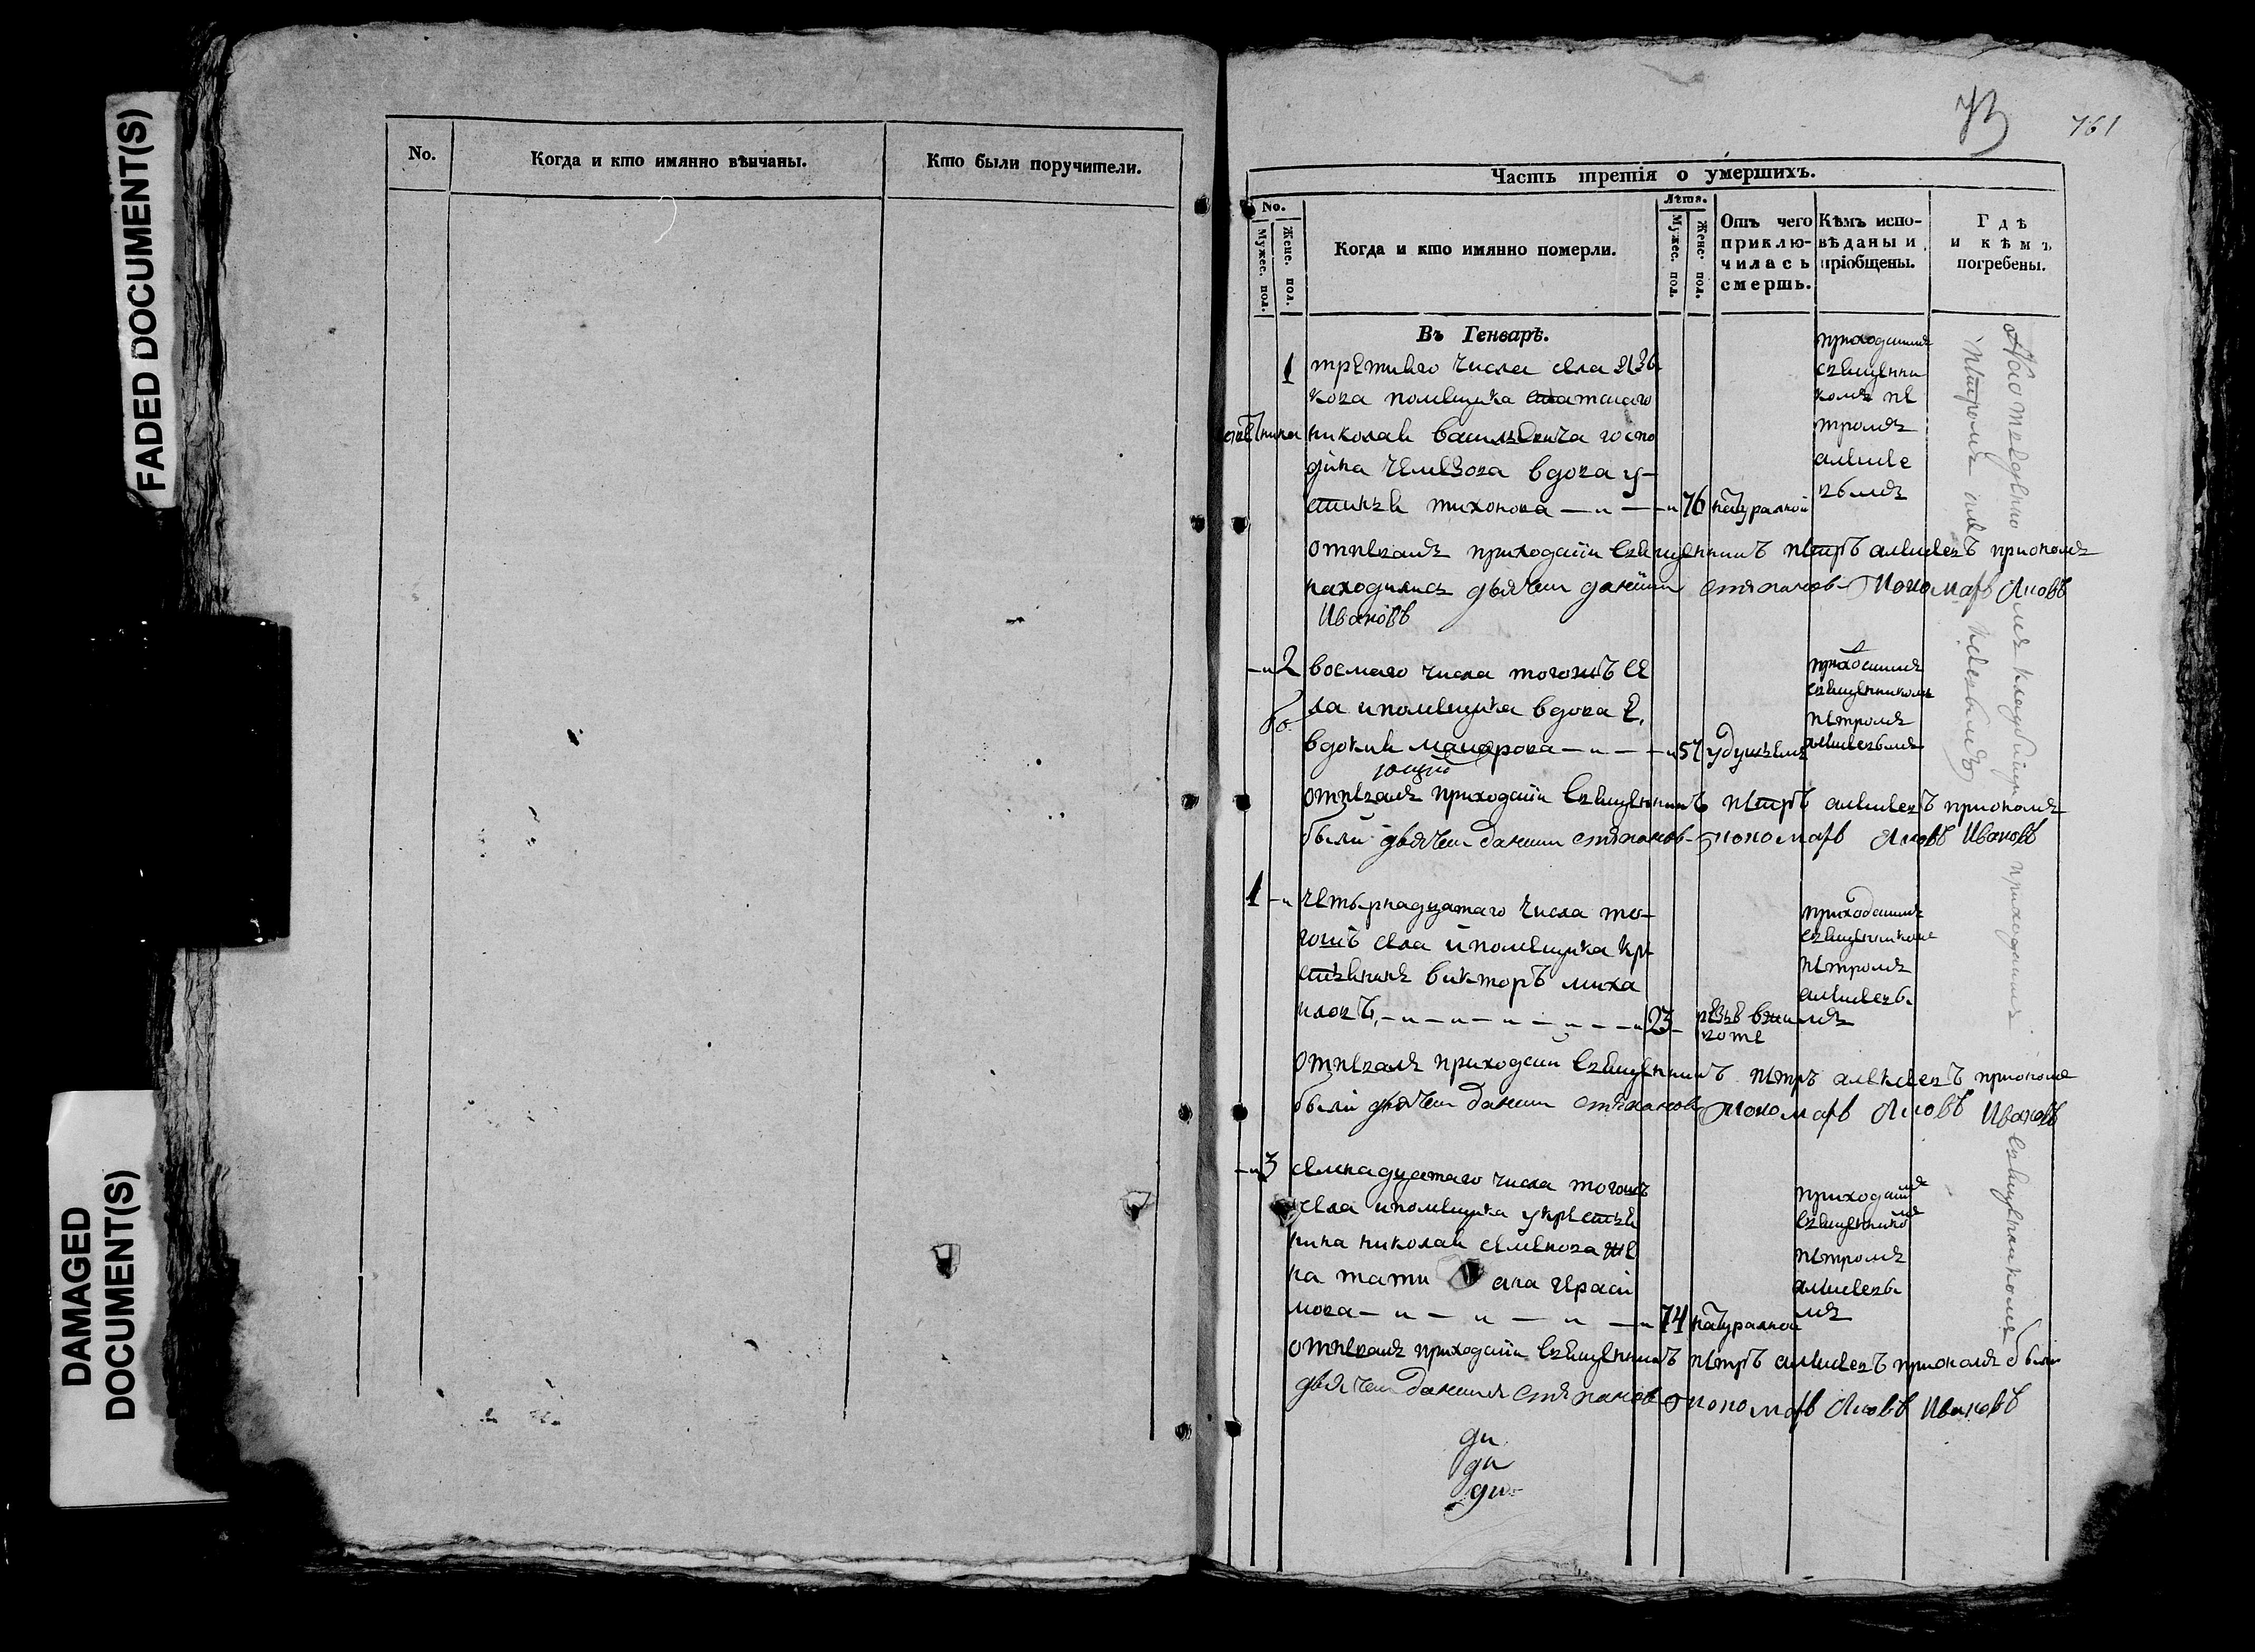 FADED DOCUMENT(S)
DAMAGED
DOCUMENT(S)
No.
Когда и кто имянно вѣнчаны.
Кто были поручители.
73
761
Часть третія о умершихъ.
No.
Мужес. пол.
Женс. пол.
Когда и кто имянно померли.
Лѣта.
Мужес. пол.
Женс. пол.
Отъ чего
приклю-
чилась
смерть.
Кѣмъ испо-
вѣданы и
пріобщены.
Гдѣ
и кѣмъ
погребены.
Въ Генварѣ.
1 третьяго числа села
кова помещика статскаго
николая васильевича госпо
дина вдова у-
стинья тихонова 76 натуралной
приходскимъ
священни
комъ пе
тромъ
алексе
евымъ
отпевалъ приходский священникъ петръ алексеевъ приономъ
находились дьячекъ данила степановъ пономарь Яковъ
Ивановъ
2 восмаго числа тогожъ се
ла ипомещика вдова е,
вдокия макарова 57 удушьемъ
приходскимъ
священникомъ
петромъ
алексеевымъ
отпевалъ приходский священникъ петръ алексеевъ приономъ
были дьячекъ данила степановъ пономарь Яковъ Ивановъ
1 четырнадцатаго числа то-
гожъ села ипомещика кре
стьянинъ викторъ миха
иловъ 23
приходскимъ
священникомъ
петромъ
алексеевы
мъ
отпевалъ приходский священникъ петръ алексеевъ приономъ
были дьячекъ данила степановъ пономарь Яковъ Ивановъ
3 семнадцатаго числа тогожъ
села ипомещика укрестья
нина николая семенова же
на тати ана гераси
мова 74 натуралной
приходским
священнико
петромъ
алексеевы
мъ
отпевалъ приходский священникъ петръ алексеевъ приономъ были
дьячекъ данила степановъ пономарь Яковъ Ивановъ
приходскимъ священникомъ
петромъ алексеевымъ